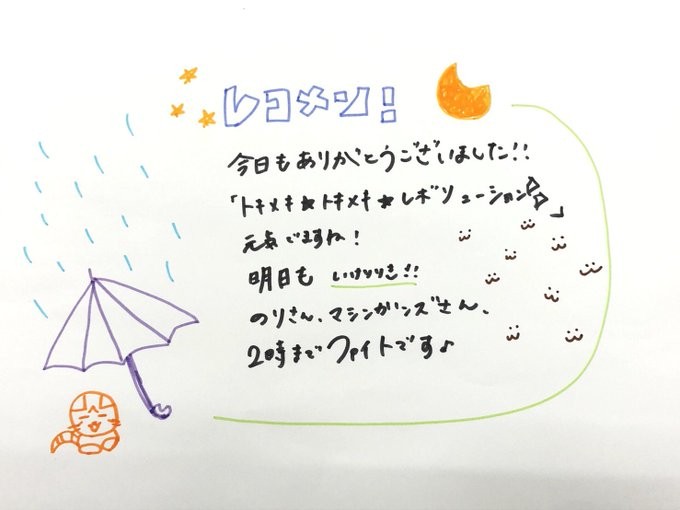 レコメン!
今日もありがとうございました!!
「トキメキ★トキメキ★レボリューション☆☆」
元気でますね!
明日も いけりりき!!
のりさん、マシンガンズさん、
2時までファイトです♪